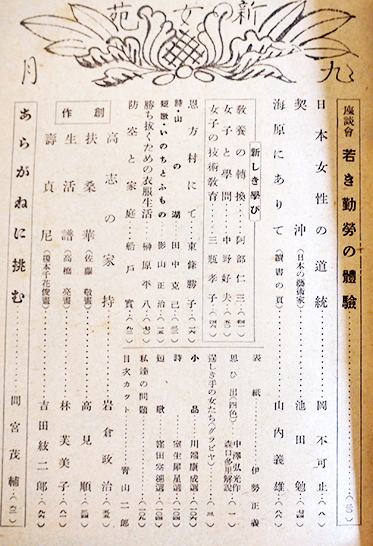 新女苑
九月
座談會 若き勤勞の體驗
日本女性の道統 岡不可止
契沖(日本の藝術家) 池田勉
海原にありて(讀書の頁) 山內義雄
新しき學び
敎養の轉換 阿部仁三
女子と學問 中野好夫
女子の技術敎育 三瓶孝子
思方村にて 東條勝子
詩・山の湖 田中克己
短歌・いのちとふもの 影山正治
勝ち拔くための衣服生活 榊原平八
防空と家庭 船戶實
表紙 伊勢正義
思ひ出(四色) 中澤弘光作 森口多里解說
逞しき手の女たち(グラビヤ)
小品 川端康成選
詩 室生犀星選
短歌 窪田空穗選
私達の問題
目次カット 靑山二郞
創作
高志の家持 岩倉政治
扶桑華(佐藤敬畫) 高見順
生活譜(高橋亮畫) 林芙美子
壽貞尼(榎本千花俊畫) 吉田絃二郞
あらがねに挑む 間宮茂輔